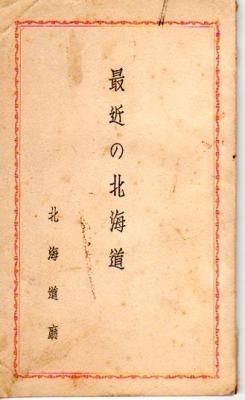 最近の北海道
北海道廳